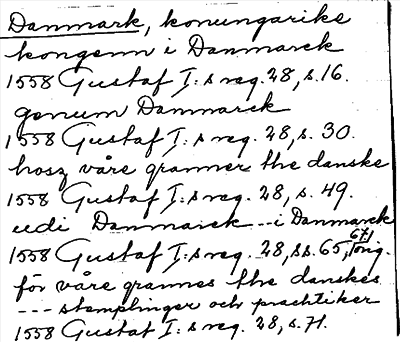 Danmark, konungarike
kongenn i Danmarck
1558 Gustaf I:s reg. 28, s. 16.
genum Danmarck
1558 Gustaf I:s reg. 28, s. 30.
hosz våre granner the danske
1558 Gustaf I:s reg. 28, s. 49.
udi Danmarck --- i Danmarck
1558 Gustaf I:s reg. 28, ss. 65, 67, orig.
för våre grannes the danskes
--- stemplinger och practiker
1558 Gustaf I:s reg. 28, s. 71.